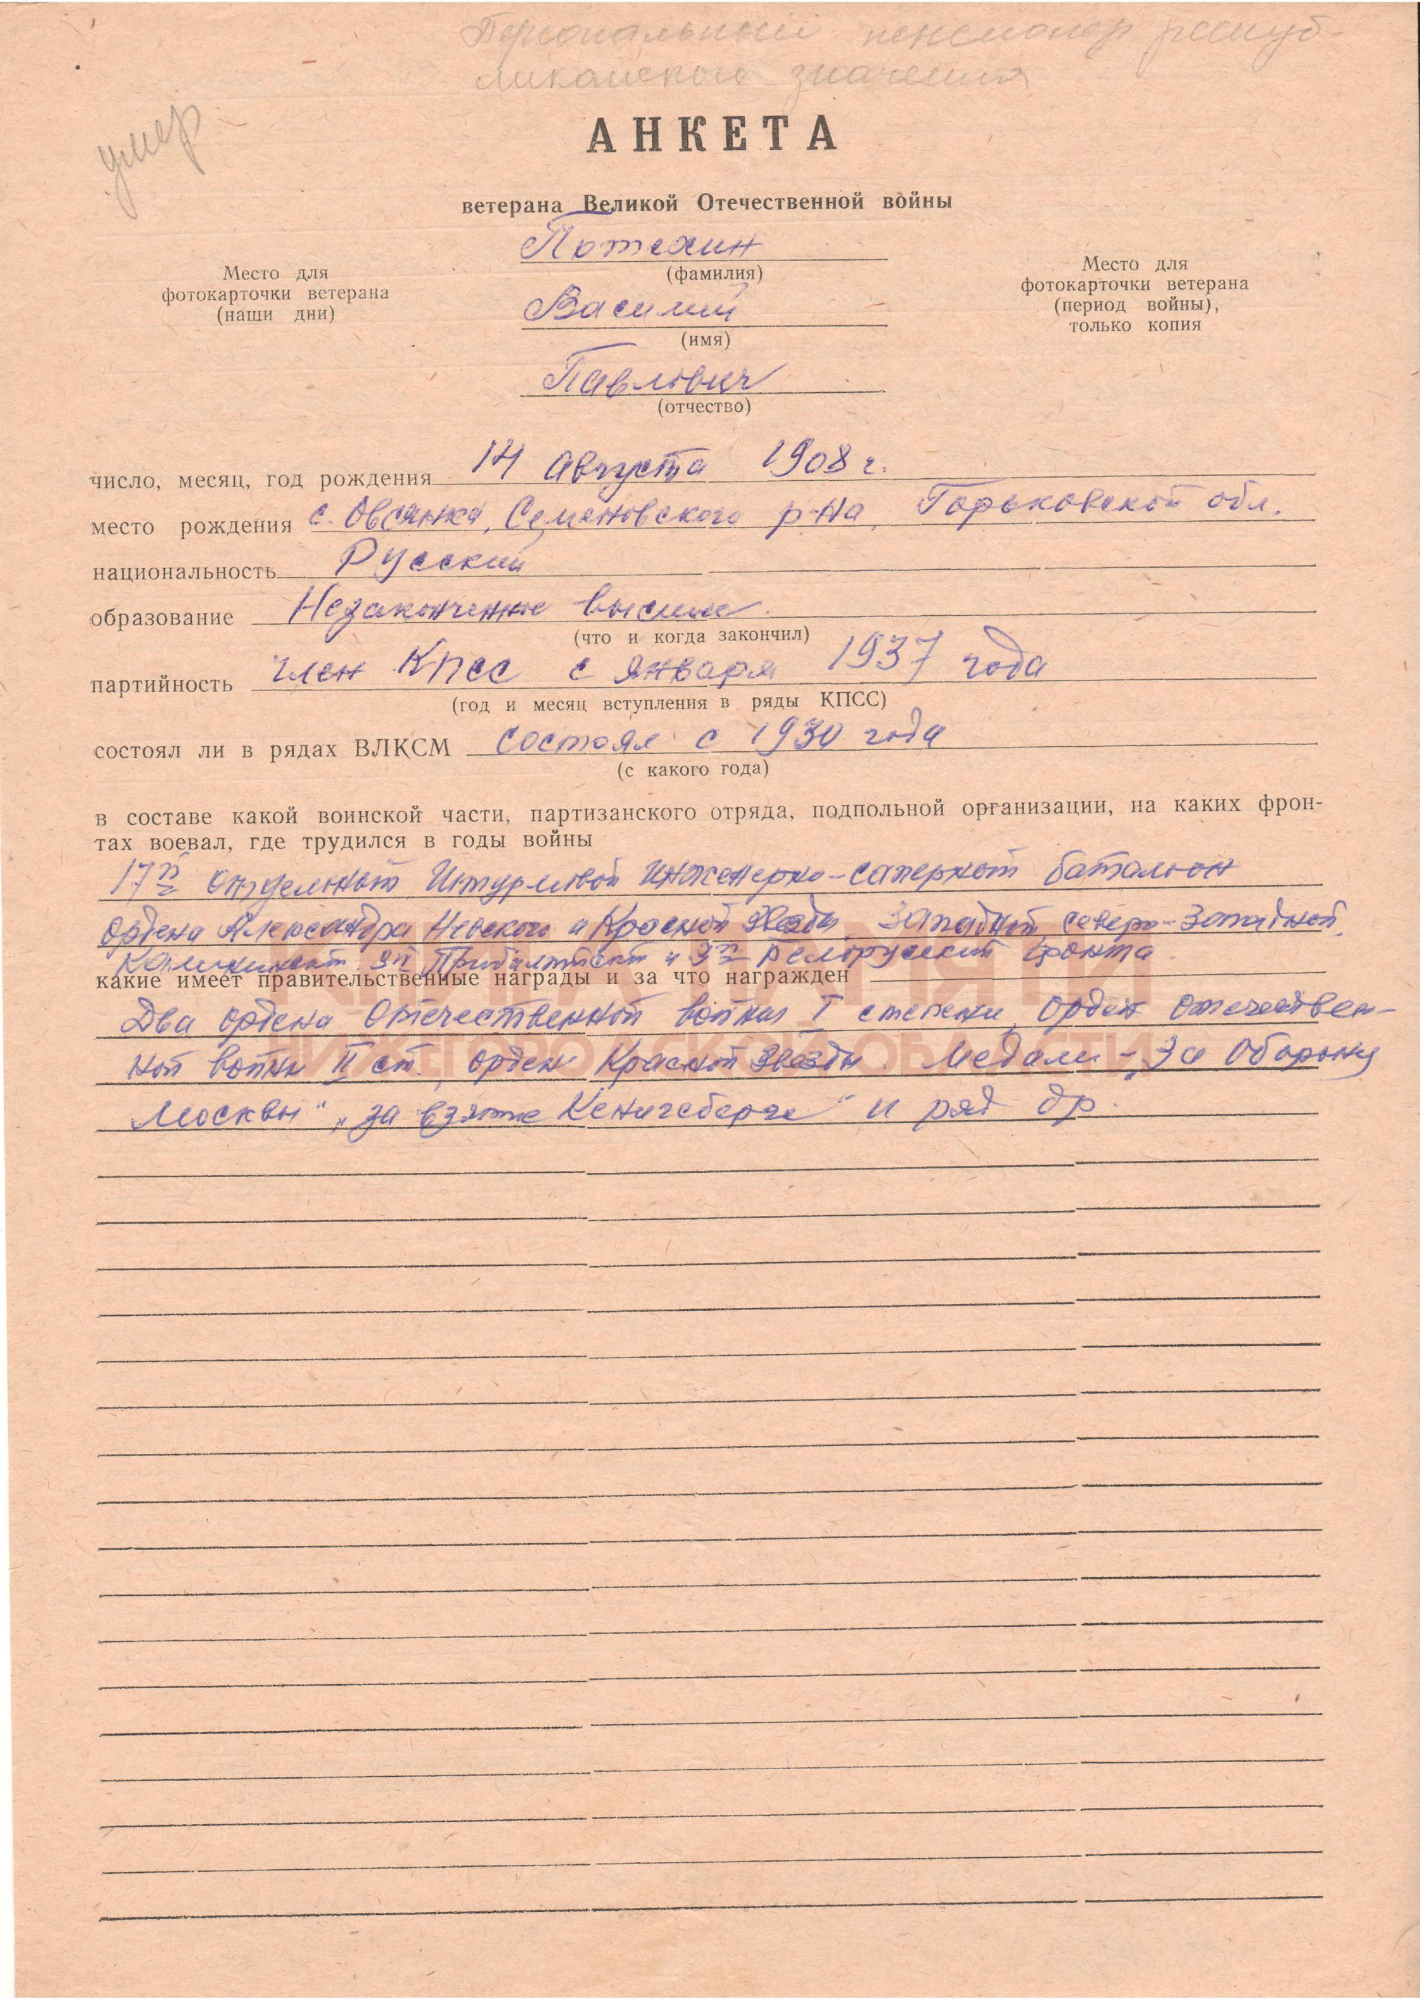 Персональный пенсионер респуб-
ликанского значения
умер
АНКЕТА
ветерана Великой Отечественной войны
Потехин
(фамилия)
Василий
(имя)
Павлович
(отчество)
Место для
фотокарточки ветерана
(наши дни)
Место для
фотокарточки ветерана
(период войны),
только копия
число, месяц, год рождения 14 августа 1908 г.
место рождения с. Овсянка, Семеновского р-на, Горьковской обл.
национальность Русский
образование Незаконченное высшее.
(что и когда закончил)
партийность член КПСС с января 1937 года
(год и месяц вступления в ряды КПСС)
состоял ли в рядах ВЛКСМ состоял с 1930 года
(с какого года)
в составе какой воинской части, партизанского отряда, подпольной организации, на каких фрон-
тах воевал, где трудился в годы войны
17й отдельной Штурмовой Инженерно-саперной баталион
ордена Александра Невского и Красной Звезды Западной, северо-Западной,
Калининской, 3й Прибалтийской и 3й Белорусский фронта.
какие имеет правительственные награды и за что награжден
Два ордена Отечественной войны I степени, Орден Отечествен-
ной войны II ст., орден Красной Звезды. Медали - „За Оборону
Москвы" „за взятие Кенигсберга" и ряд др.
КНИГА ПАМЯТИ
НИЖЕГОРОДСКОЙ ОБЛАСТИ